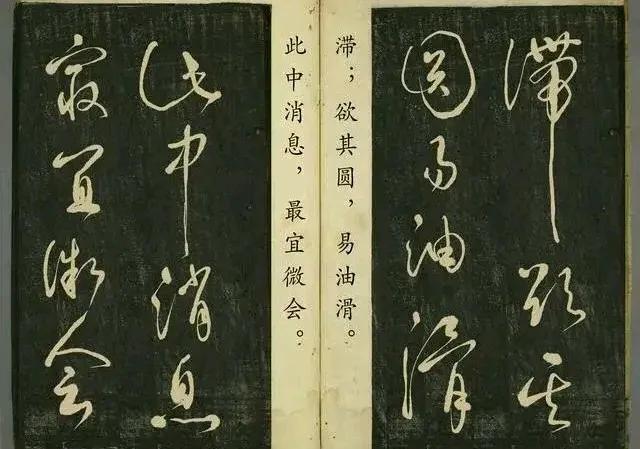 滞欲其
圆易油滑
滞；欲其圆，易油滑。
此中消息，最宜微会。
此中消息
最宜微会